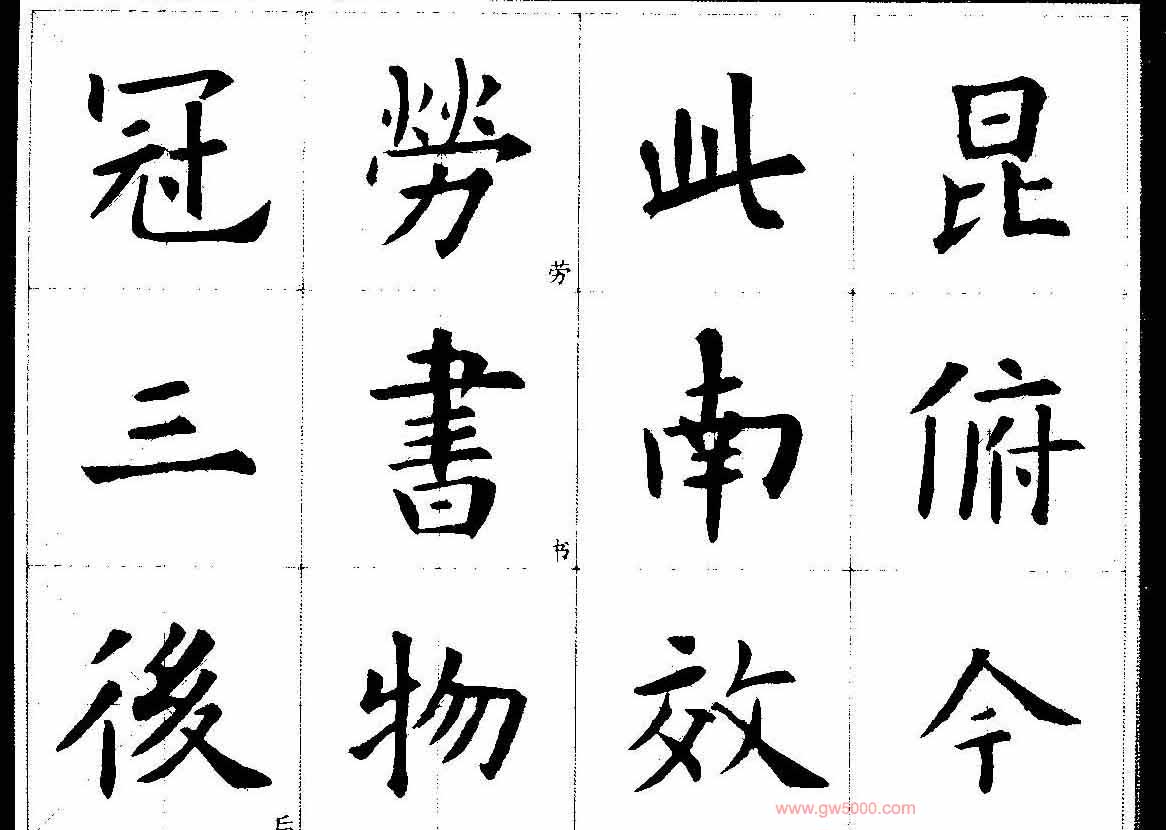 冠 勞 此 昆
劳
三 書 南 俯
书
後 物 效 今
后
www.gw5000.com